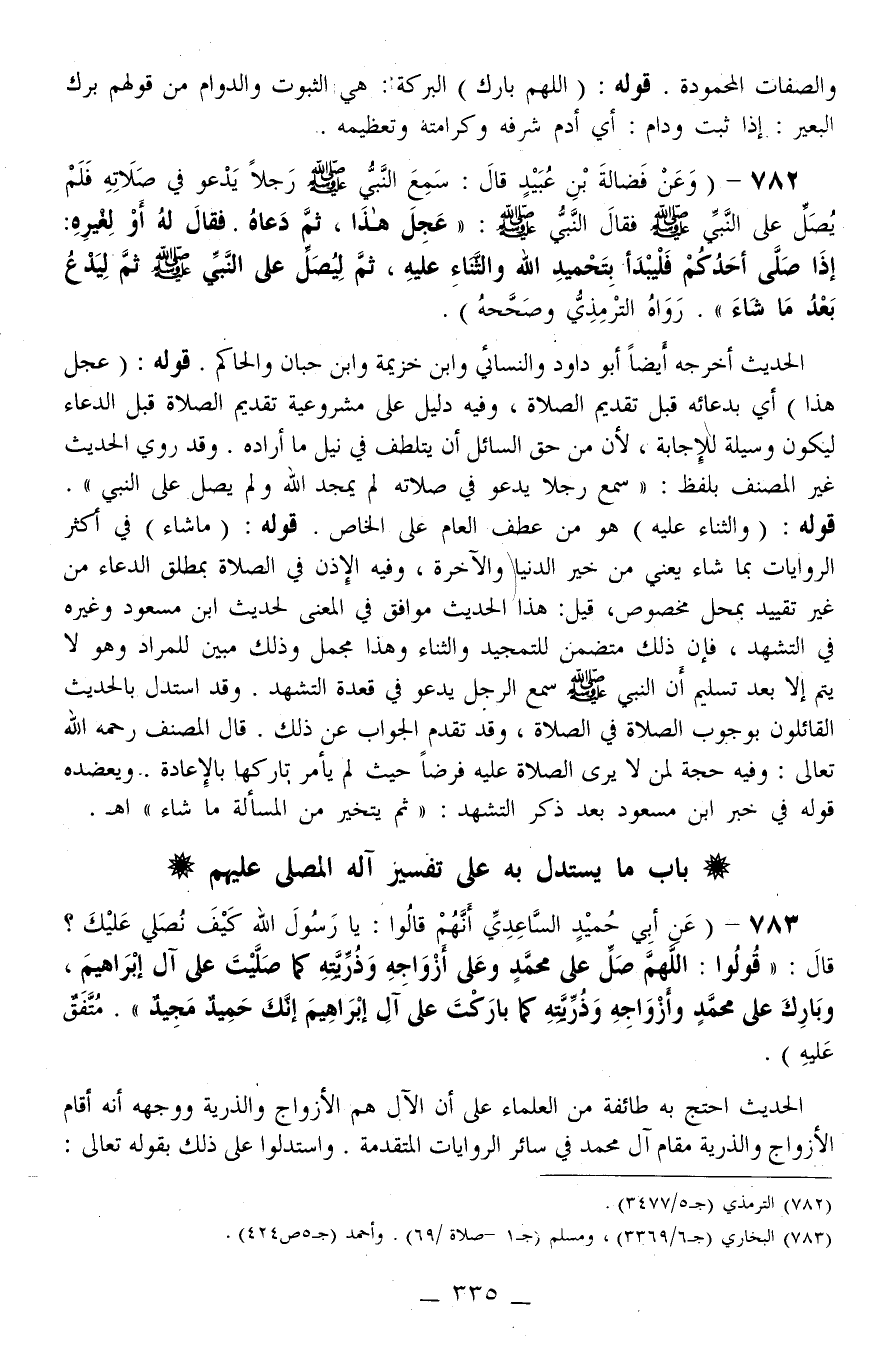 والصفات المحمودة . قوله : ( اللهم بارك ) البركة : هي الثبوت والدوام من قولهم برك
البعير : إذا ثبت ودام : أي أدم شرفه وكرامته وتعظيمه .
٧٨٢ - ( وَعَنْ فَضالةَ بْنِ عُبَيْدٍ قالَ : سَمِعَ النَّبيُّ ﷺ رَجلاً يَدْعو في صَلَاتِهِ فَلَمْ
يُصَلِّ على النَّبيِّ ﷺ فقالَ النَّبيُّ ﷺ : « عَجِلَ هٰذَا ، ثمَّ دَعاهُ . فقالَ لهُ أوْ لِغْيرِهِ:
إذَا صَلَّى أحَدُكُمْ فَلْيَبْدَأ بِتَحْميدِ الله والثَّناءِ عليهِ ، ثمَّ لِيُصَلِّ على النَّبيِّ ﷺ ثمَّ لِيَدْعُ
بَعْدُ مَا شاءَ » . رَوَاهُ الترْمِذيُّ وصَحَّحهُ ) .
الحديث أخرجه أيضاً أبو داود والنسائي وابن خزيمة وابن حبان والحاكم . قوله : ( عجل
هذا ) أي بدعائه قبل تقديم الصلاة ، وفيه دليل على مشروعية تقديم الصلاة قبل الدعاء
ليكون وسيلة للإجابة ، لأن من حق السائل أن يتلطف في نيل ما أراده . وقد روي الحديث
غير المصنف بلفظ : « سمع رجلا يدعو في صلاته لم يمجد الله ولم يصل على النبي » .
قوله : ( والثناء عليه ) هو من عطف العام على الخاص . قوله : ( ماشاء ) في أكثر
الروايات بما شاء يعني من خير الدنيا والآخرة ، وفيه الإذن في الصلاة بمطلق الدعاء من
غير تقييد بمحل مخصوص، قيل: هذا الحديث موافق في المعنى لحديث ابن مسعود وغيره
في التشهد ، فإن ذلك متضمن للتمجيد والثناء وهذا مجمل وذلك مبين للمراد وهو لا
يتم إلا بعد تسليم أن النبي ﷺ سمع الرجل يدعو في قعدة التشهد . وقد استدل بالحديث
القائلون بوجوب الصلاة في الصلاة ، وقد تقدم الجواب عن ذلك . قال المصنف رحمه الله
تعالى : وفيه حجة لمن لا يرى الصلاة عليه فرضاً حيث لم يأمر تاركها بالإعادة . ويعضده
قوله في خبر ابن مسعود بعد ذكر التشهد : « ثم يتخير من المسألة ما شاء » اهـ .
باب ما يستدل به على تفسيز آله المصلى عليهم
٧٨٣ - ( عَنِ أبي حُميْدٍ السَّاعِدِيِّ أنَّهُمْ قالُوا : يا رَسُولَ الله كَيْفَ نُصَلي عَليْكَ ؟
قالَ : « قُولُوا : اللَّهمَّ صَلِّ على محمَّدٍ وعَلى أزْوَاجِهِ وَذُرِّيَّتِهِ كما صَليْتَ على آل إبْرَاهيمَ ،
وبَارِكَ على محمَّدٍ وأزْوَاجِهِ وَذُرِّيَّتِهِ كما بارَكْتَ على آلِ إبْرَاهِيمَ إنَّكَ حَمِيدٌ مَجِيدٌ » . مُتَّفَقٌ
عَليهِ ) .
الحديث احتج به طائفة من العلماء على أن الآل هم الأزواج والذرية ووجهه أنه أقام
الأزواج والذرية مقام آل محمد في سائر الروايات المتقدمة . واستدلوا على ذلك بقوله تعالى :
(٧٨٢) الترمذي (جـ٣٤٧٧/٥) .
(٧٨٣) البخاري (جـ٣٣٦٩/٦) ، ومسلم (جـ١ -صلاة /٦٩) . وأحمد (جـ٥ص٤٢٤) .
_ ٣٣٥ _